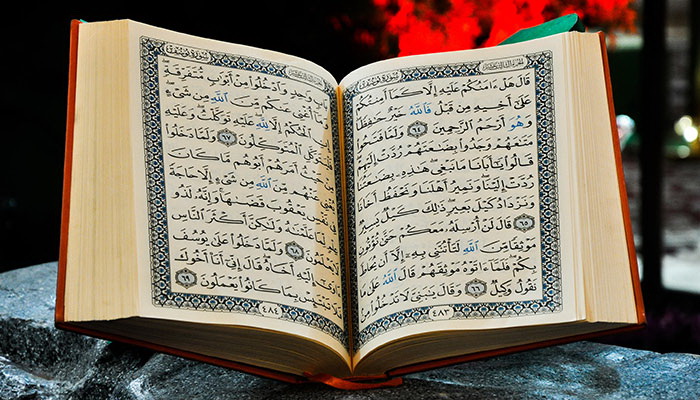 سُورَةُ يُوسُفَ
قَالَ هَلْ ءَامَنُكُمْ عَلَيْهِ إِلَّا كَمَآ أَمِنتُكُمْ
عَلَىٰٓ أَخِيهِ مِن قَبْلُ فَٱللَّهُ خَيْرٌ حَٰفِظًا
وَهُوَ أَرْحَمُ ٱلرَّٰحِمِينَ ٦٤ وَلَمَّا فَتَحُوا۟
مَتَٰعَهُمْ وَجَدُوا۟ بِضَٰعَتَهُمْ رُدَّتْ إِلَيْهِمْ
قَالُوا۟ يَٰٓأَبَانَا مَا نَبْغِى هَٰذِهِۦ بِضَٰعَتُنَا
رُدَّتْ إِلَيْنَا وَنَمِيرُ أَهْلَنَا وَنَحْفَظُ أَخَانَا
وَنَزْدَادُ كَيْلَ بَعِيرٍ ذَٰلِكَ كَيْلٌ يَسِيرٌ ٦٥
قَالَ لَنْ أُرْسِلَهُۥ مَعَكُمْ حَتَّىٰ تُؤْتُونِ
مَوْثِقًا مِّنَ ٱللَّهِ لَتَأْتُنَّنِى بِهِۦٓ إِلَّآ أَن يُحَاطَ
بِكُمْ فَلَمَّآ ءَاتَوْهُ مَوْثِقَهُمْ قَالَ ٱللَّهُ عَلَىٰ مَا
نَقُولُ وَكِيلٌ ٦٦ وَقَالَ يَٰبَنِىَّ لَا تَدْخُلُوا۟ مِنۢ
٤٨٣
سُورَةُ يُوسُفَ
بَابٍ وَٰحِدٍ وَٱدْخُلُوا۟ مِنْ أَبْوَٰبٍ مُّتَفَرِّقَةٍ
وَمَآ أُغْنِى عَنكُم مِّنَ ٱللَّهِ مِن شَىْءٍ
ٱلْحُكْمُ إِلَّا لِلَّهِ عَلَيْهِ تَوَكَّلْتُ وَعَلَيْهِ
فَلْيَتَوَكَّلِ ٱلْمُتَوَكِّلُونَ ٦٧ وَلَمَّا دَخَلُوا۟
حَيْثُ أَمَرَهُمْ أَبُوهُم مَّا كَانَ
عَنْهُم مِّنَ ٱللَّهِ مِن شَىْءٍ إِلَّا حَاجَةً
نَفْسِ يَعْقُوبَ قَضَىٰهَا وَإِنَّهُۥ لَذُو
عَلَّمْنَٰهُ وَلَٰكِنَّ أَكْثَرَ ٱلنَّاسِ
يَعْلَمُونَ ٦٨ وَلَمَّا دَخَلُوا۟ عَلَىٰ يُوسُفَ
إِلَيْهِ أَخَاهُ قَالَ إِنِّىٓ أَنَا۠ أَخُوكَ
تَبْتَئِسْ بِمَا كَانُوا۟ يَعْمَلُونَ ٦٩
٤٨٤